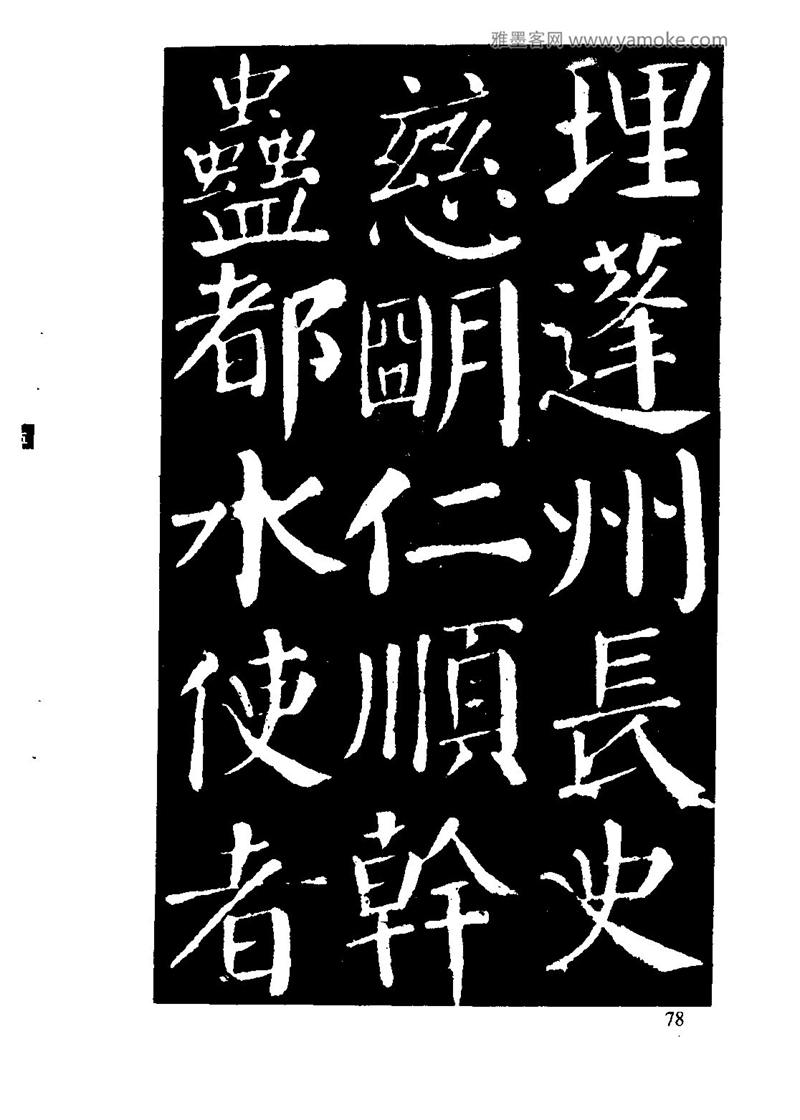 雅墨客网 www.yamoke.com
理蓬州長史
慈明仁順幹
蠱都水使者
五
78